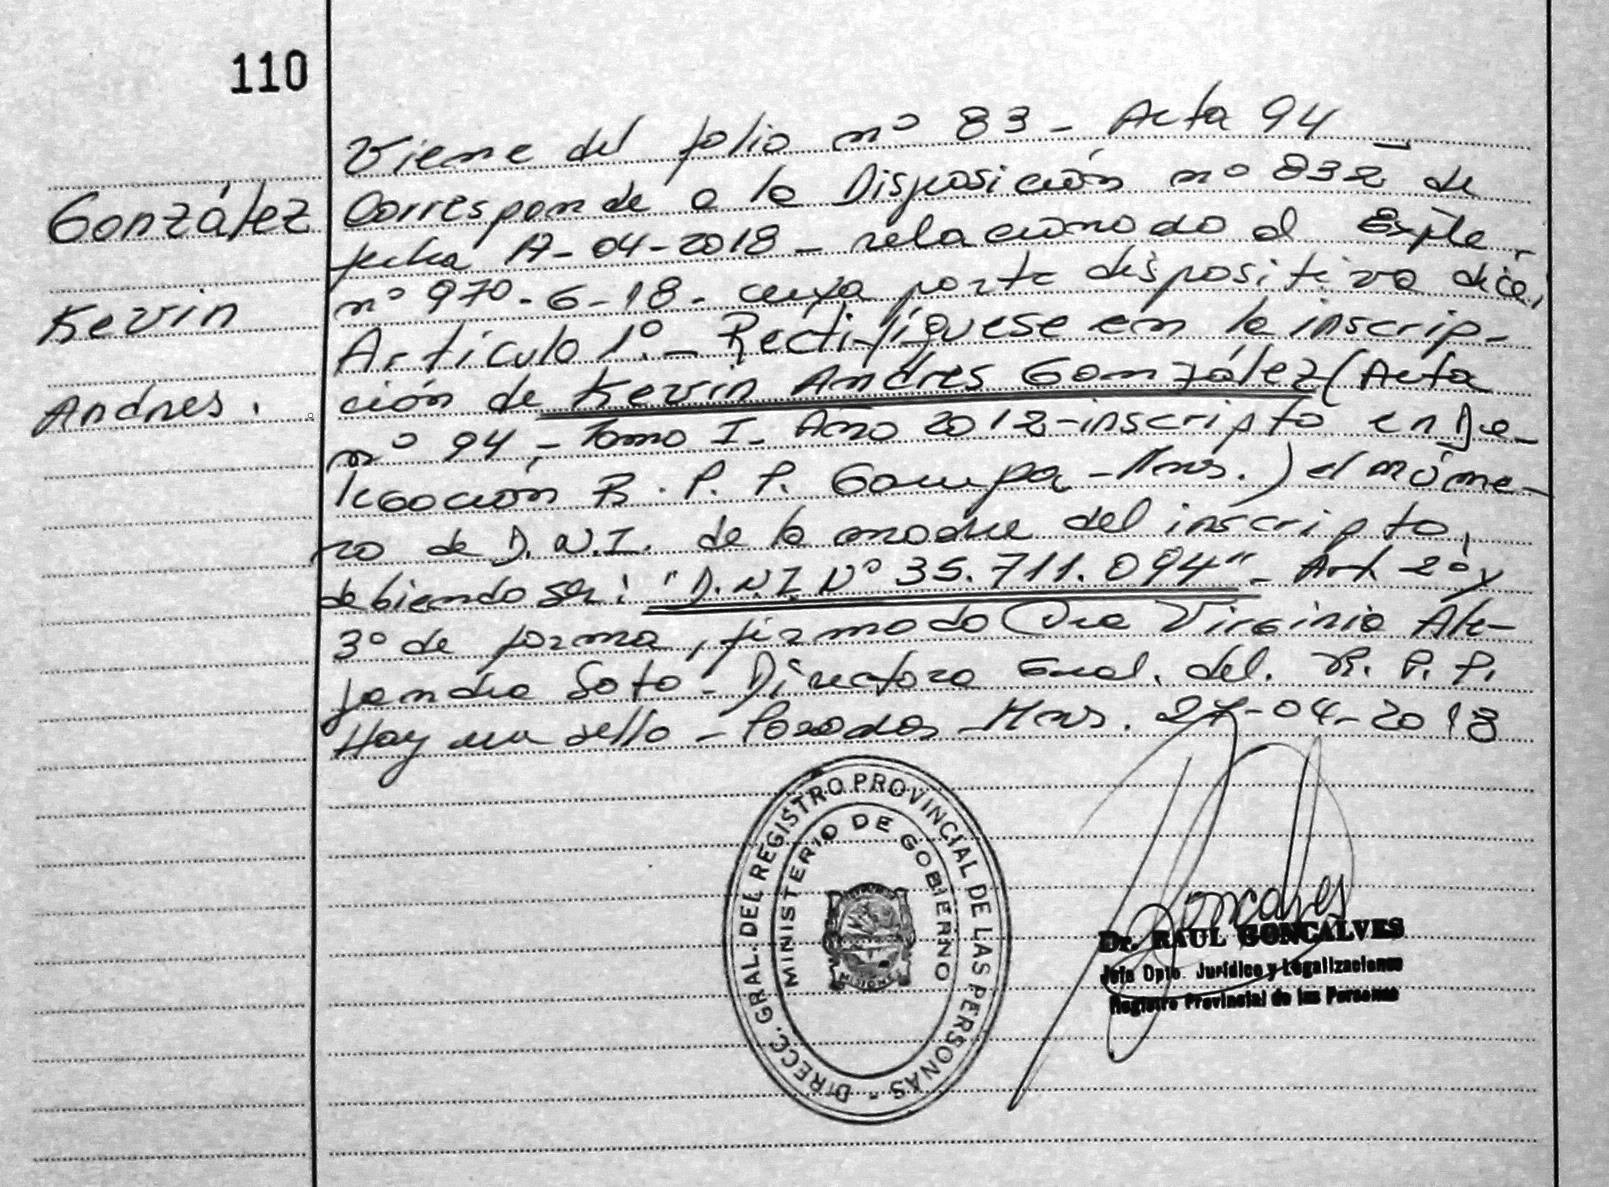 110
González
Kevin
Andres.
Viene del folio nº 83 - Acta 94 -
Corresponde a la Disposición nº 832 de
fecha 17-04-2018 - relacionado al Expte.
nº 970-6-18- cuya parte dispositiva dice,
Artículo 1º.- Rectifíquese en la inscrip-
ción de Kevin Andres González (Acta
nº 94 - Tomo I - Año 2012 - inscripto en De-
legación R. P. P. Garupa - Mns.) el núme-
ro de D.N.I. de la madre del inscripto,
debiendo ser: "D.N.I. Nº 35.711.094" - Art. 2º y
3º de forma, firmado Dra Virginia Ale-
jandra Soto - Directora Gral. del. R. P. P.
Hay un sello - Posadas Mns. 27-04-2018
DIRECC. GRAL. DEL REGISTRO PROVINCIAL DE LAS PERSONAS -
MINISTERIO DE GOBIERNO
MISIONES
Goncalves
Dr. RAUL GONCALVES
Jefe Dpto. Jurídico y Legalizaciones
Registro Provincial de las Personas